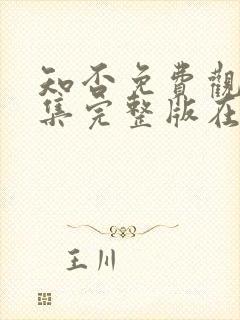 知否免費觀
集完整版在
王川